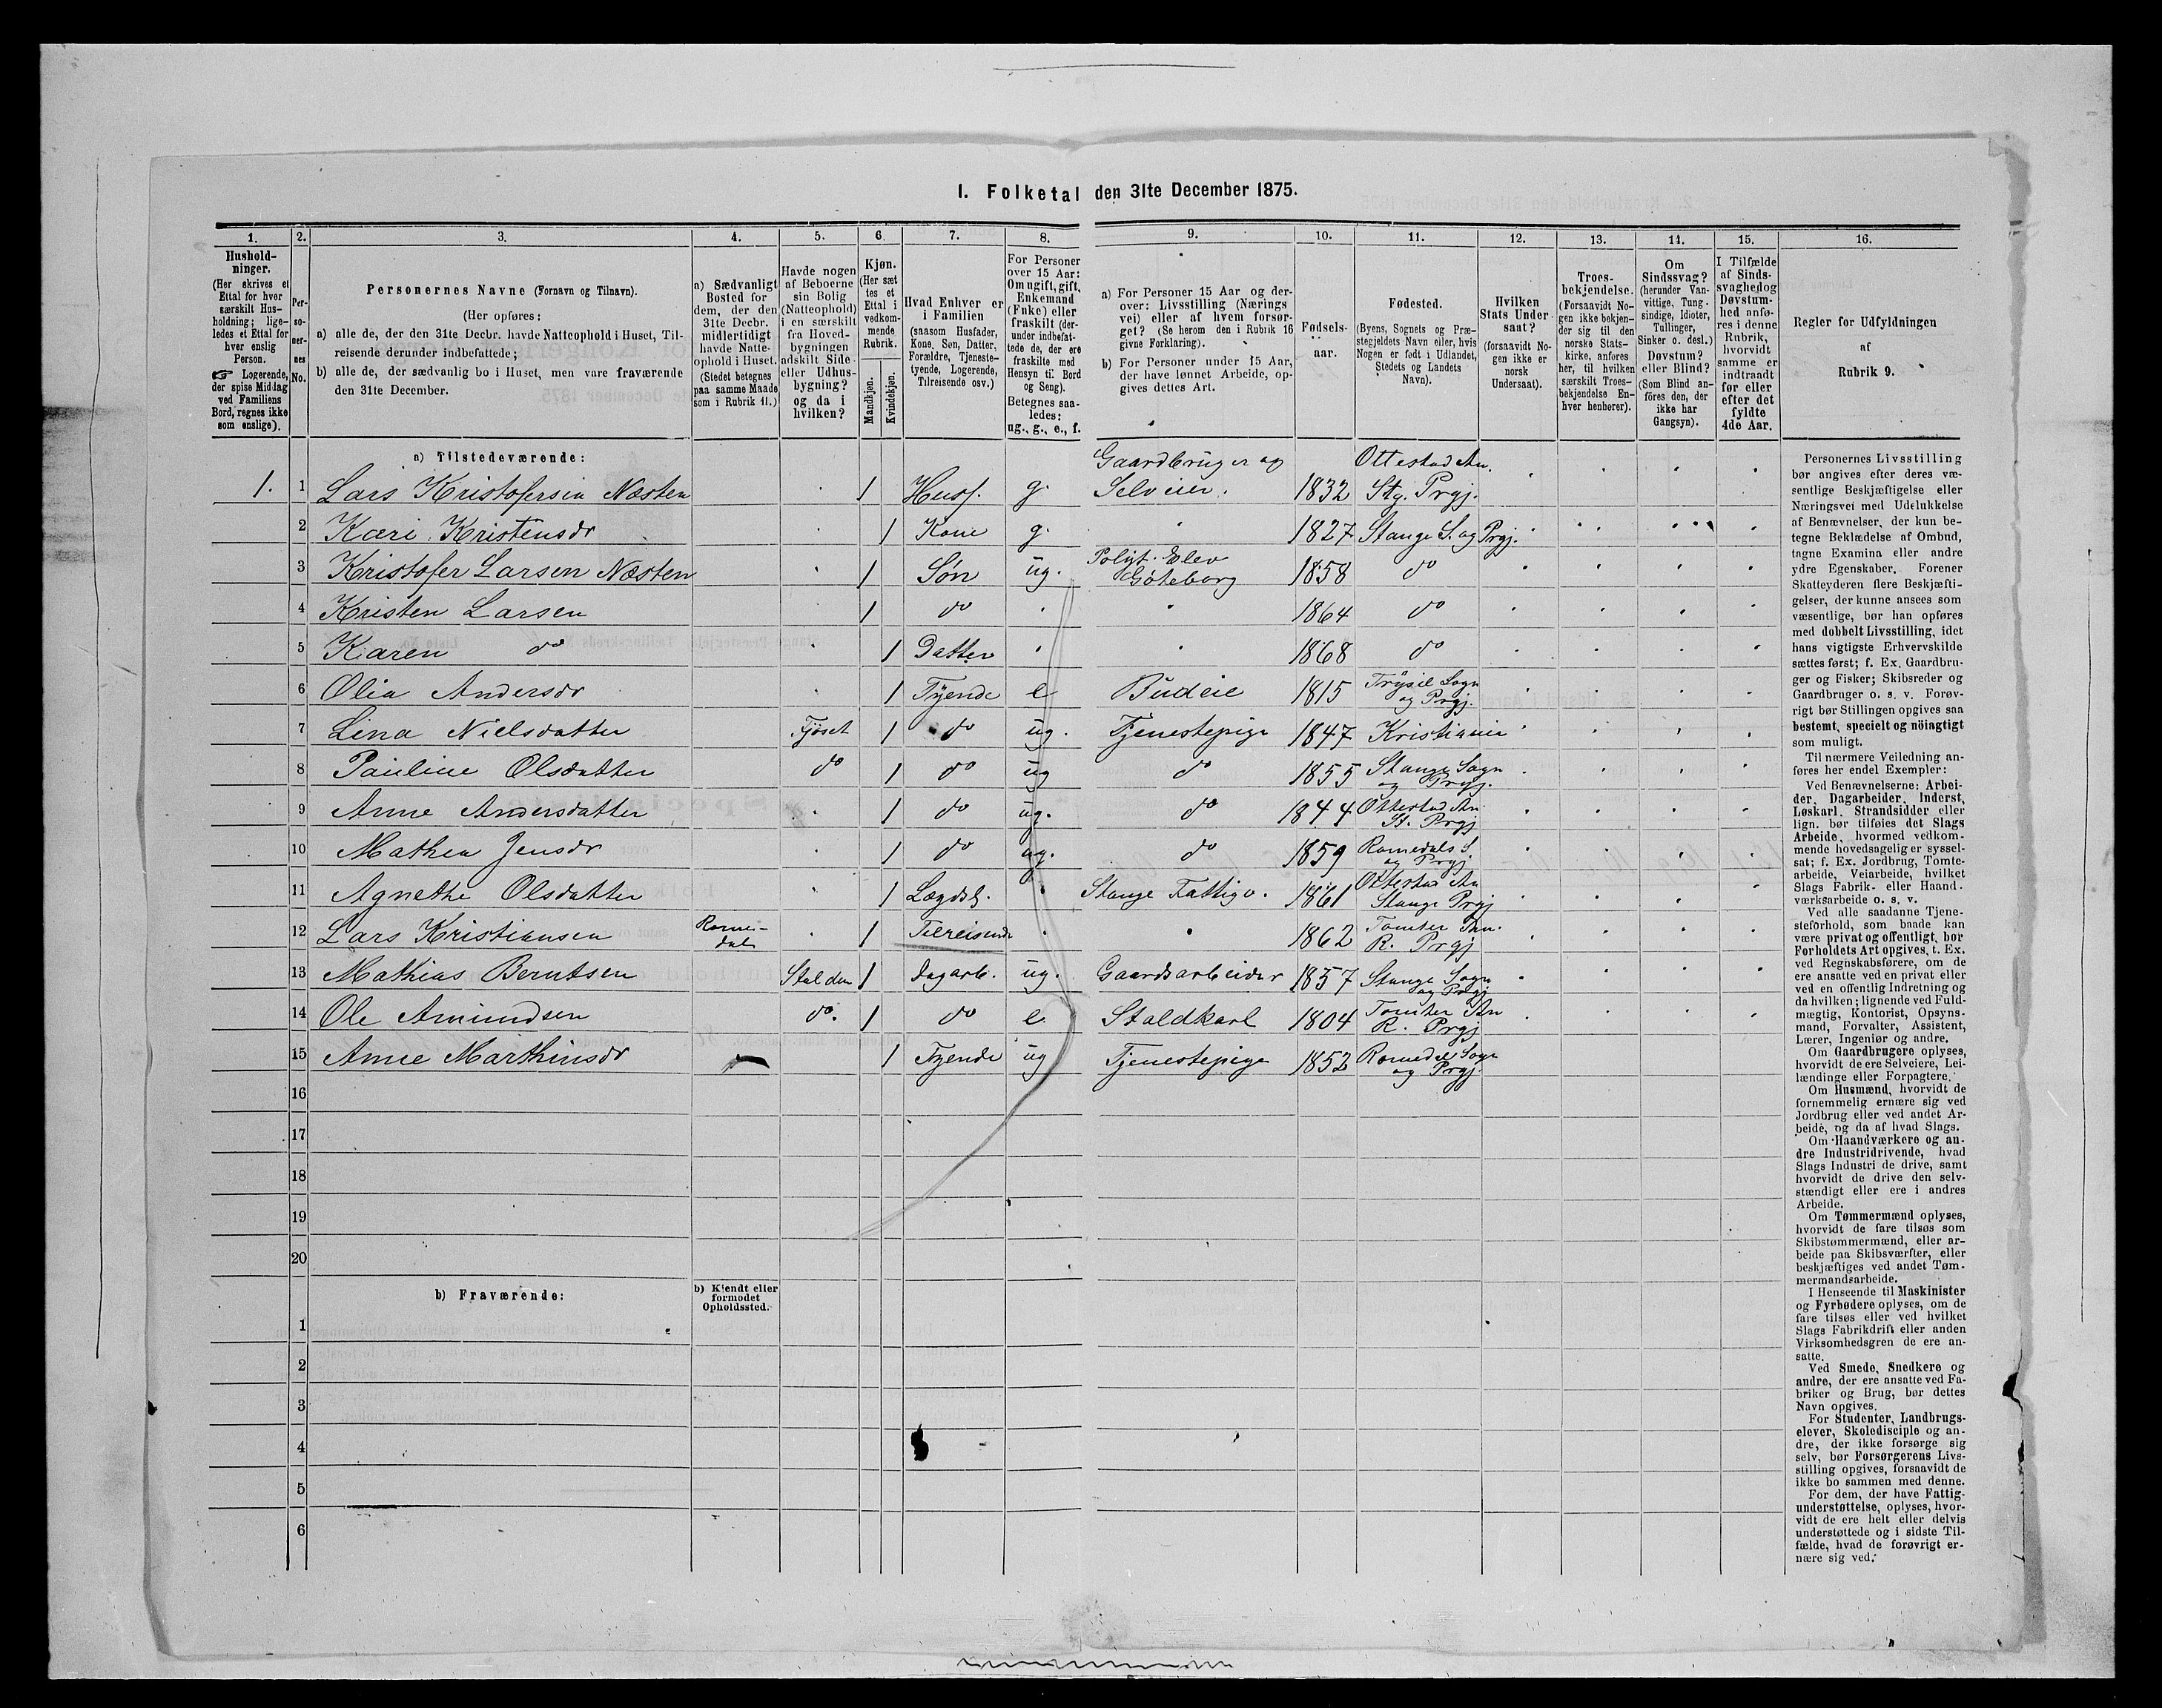 I. Folketal den 31te December 1875.
1. 2. 3. 4. 5. 6. 7. 8. 9. 10. 11. 12. 13. 14. 15. 16.
Hushold-
ninger.
(Her skrives et
Ettal for hver
særskilt Hus-
holdning; lige-
ledes et Ettal for
hver enslig
Person.
☞ Logerende,
der spise Middag
ved Familiens
Bord, regnes ikke
som enslige).
Per-
so-
ner-
nes
No.
Personernes Navne (Fornavn og Tilnavn).
(Her opføres:
a) alle de, der den 31te Decbr. havde Natteophold i Huset, Til-
reisende derunder indbefattede;
b) alle de, der sædvanlig bo i Huset, men vare fraværende
den 31te December.
a) Sædvanligt
Bosted for
dem, der den
31te Decbr.
midlertidigt
havde Natte-
ophold i Huset.
(Stedet betegnes
paa samme Maade
som i Rubrik 11.)
Havde nogen
af Beboerne
sin Bolig
(Natteophold)
i en særskilt
fra Hoved-
bygningen
adskilt Side-
eller Udhus-
bygning?
og da i
hvilken?
Kjøn.
(Her sæt-
tes et
Ettal i
vedkom-
mende
Rubrik.
Mandkjøn.
Kvindekjøn.
Hvad Enhver er
i Familien
(saasom Husfader,
Kone, Søn, Datter,
Forældre, Tjeneste-
tyende, Logerende,
Tilreisende osv.)
For Personer
over 15 Aar:
Om ugift, gift,
Enkemand
(Enke) eller
fraskilt (der-
under indbefat-
tede de, der ere
fraskilte med
Hensyn til Bord
og Seng).
Betegnes saa-
ledes:
ug., g., e., f.
a) For Personer 15 Aar og der-
over: Livsstilling (Nærings-
vei) eller af hvem forsør-
get? (Se herom den i Rubrik 16
givne Forklaring).
b) For Personer under 15 Aar,
der have lønnet Arbeide, op-
gives dettes Art.
Fødsels-
aar.
Fødested.
(Byens, Sognets og Præ-
stegjeldets Navn eller, hvis
Nogen er født i Udlandet,
Stedets og Landets
Navn).
Hvilken
Stats Under-
saat?
(forsaavidt No-
gen ikke er
norsk
Undersaat).
Troes-
bekjendelse.
(Forsaavidt No-
gen ikke bekjen-
der sig til den
norske Stats-
kirke, anføres
her, til hvilken
særskilt Troes-
bekjendelse En-
hver henhører).
Om
Sindssvag?
(herunder Van-
vittige, Tung-
sindige, Idioter,
Tullinger,
Sinker o. desl.)
Døvstum?
eller Blind?
(Som Blind an-
føres den, der
ikke har
Gangsyn).
I Tilfælde
af Sinds-
svaghed og
Døvstum-
hed anfø-
res i denne
Rubrik,
hvorvidt
samme er
indtraadt
før eller
efter det
fyldte
4de Aar.
Regler for Udfyldningen
af
Rubrik 9.
a) Tilstedeværende:
1. 1 Lars Kristofersen Næsten 1 Husf. g. Gaardbruger og Selveier. 1832 Ottestad An. Stg. Prgj.
2 Kari Kristensdr 1 Kone g. 1827 Stange S. og Prgj.
3 Kristofer Larsen Næsten 1 Søn ug. Polyt. Elev Göteborg 1858 do
4 Kristen Larsen 1 do 1864 do
5 Karen do 1 Datter 1868 do
6 Olia Andersdr 1 Tyende e Budeie 1815 Trysil Sogn og Prgj.
7 Lina Nielsdatter Fjøset 1 do ug. Tjenestepige 1847 Kristiania
8 Pauline Olsdatter do 1 do ug do 1855 Stange Sogn og Prgj.
9 Anne Andersdatter 1 do ug. do 1844 Ottestad An. St. Prgj
10 Mathea Jensdr 1 do ug. do 1859 Romedals S. og Prgj.
11 Agnethe Olsdatter 1 Lægdsl. Stange Fattigv. 1861 Ottestad An Stange Prgj
12 Lars Kristiansen Rome-dal 1 Tilreisende 1862 Tomter An. R. Prgj
13 Mathias Berntsen Stalden 1 Dagarb. ug. Gaardsarbeider 1857 Stange Sogn og Prgj
14 Ole Amundsen do. 1 do e Staldkarl 1804 Tomter An R. Prgj
15 Anne Marthinsdr 1 Tyende ug Tjenestepige 1852 Romedal Sogn og Prgj.
16
17
18
19
20
b) Fraværende:
b) Kjendt eller
formodet
Opholdssted.
1
2
3
4
5
6
Personernes Livsstilling
bør angives efter deres væ-
sentlige Beskjæftigelse eller
Næringsvei med Udelukkelse
af Benævnelser, der kun be-
tegne Beklædelse af Ombud,
tagne Examina eller andre
ydre Egenskaber. Forener
Skatteyderen flere Beskjæfti-
gelser, der kunne ansees som
væsentlige, bør han opføres
med dobbelt Livsstilling, idet
hans vigtigste Erhvervskilde
sættes først; f. Ex. Gaardbru-
ger og Fisker; Skibsreder og
Gaardbruger o. s. v. Forøv-
rigt bør Stillingen opgives saa
bestemt, specielt og nöiagtigt
som muligt.
Til nærmere Veiledning an-
føres her endel Exempler:
Ved Benævnelserne: Arbei-
der, Dagarbeider, Inderst,
Løskarl, Strandsidder eller
lign. bør tilføies det Slags
Arbeide, hvormed vedkom-
mende hovedsagelig er syssel-
sat; f. Ex. Jordbrug, Tomte-
arbeide, Veiarbeide, hvilket
Slags Fabrik- eller Haand-
værksarbeide o. s. v.
Ved alle saadanne Tjene-
steforhold, som baade kan
være privat og offentligt, bør
Forholdets Art opgives, t. Ex.
ved Regnskabsførere, om de
ere ansatte ved en privat eller
ved en offentlig Indretning og
da hvilken; lignende ved Fuld-
mægtig, Kontorist, Opsyns-
mand, Forvalter, Assistent,
Lærer, Ingeniør og andre.
Om Gaardbrugere oplyses,
hvorvidt de ere Selveiere, Lei-
lændinge eller Forpagtere.
Om Husmænd, hvorvidt de
fornemmelig ernære sig ved
Jordbrug eller ved andet Ar-
beide, og da af hvad Slags.
Om Haandværkere og an-
dre Industridrivende, hvad
Slags Industri de drive, samt
hvorvidt de drive den selv-
stændigt eller ere i andres
Arbeide.
Om Tømmermænd oplyses,
hvorvidt de fare tilsøs som
Skibstømmermænd, eller ar-
beide paa Skibsværfter, eller
beskjæftiges ved andet Tøm-
mermandsarbeide.
I Henseende til Maskinister
og Fyrbødere oplyses, om de
fare tilsøs eller ved hvilket
Slags Fabrikdrift eller anden
Virksomhedsgren de ere an-
satte.
Ved Smede, Snedkere og
andre, der ere ansatte ved Fa-
briker og Brug, bør dettes
Navn opgives.
For Studenter, Landbrugs-
elever, Skoledisciple og an-
dre, der ikke forsørge sig
selv, bør Forsørgerens Livs-
stilling opgives, forsaavidt de
ikke bo sammen med denne.
For dem, der have Fattig-
understøttelse, oplyses, hvor-
vidt de ere helt eller delvis
understøttede og i sidste Til-
fælde, hvad de forøvrigt er-
nære sig ved.